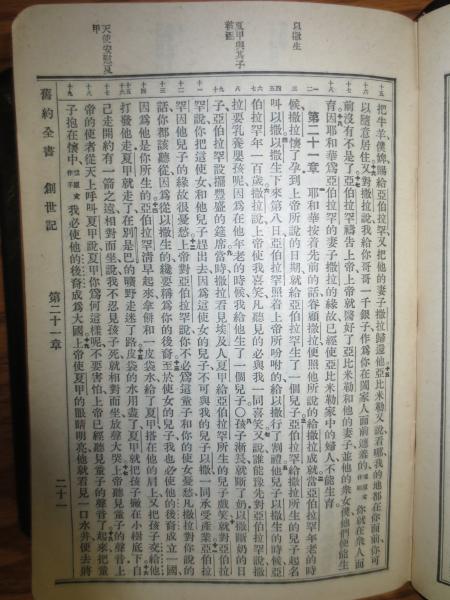 以撒生
夏甲與其子
被逐
天使安慰夏
甲
把牛羊僕婢賜給亞伯拉罕又把他的妻子撒拉歸還他亞比米勒又說看哪我的地都在你面前你可
以隨意居住又對撒拉說我給你哥哥一千銀子作爲你在闔家人面前遮羞的你就在眾人面
前沒有不是了亞伯拉罕禱告上帝上帝就醫好了亞比米勒和他的妻子並他的衆女僕他們便能生
育因耶和華爲亞伯拉罕的妻子撒拉的緣故已經使亞比米勒家中的婦人不能生育
第二十一章 耶和華按着先前的話眷顧撒拉便照他所說的給撒拉成就當亞伯拉罕年老的時
候撒拉懷了孕到上帝所說的日期就給亞伯拉罕生了一個兒子亞伯拉罕給撒拉所生的兒子起名
叫以撒以撒生下來第八日亞伯拉罕照着上帝所吩咐的給以撒行了割禮他兒子以撒生的時候亞
伯拉罕年一百歲撒拉說上帝使我喜笑凡聽見的必與我一同喜笑又說誰能豫先對亞伯拉罕說撒
拉要乳養嬰孩呢因爲在他年老的時候我給他生了一個兒子○孩子漸長就斷了奶以撒斷奶的日
子亞伯拉罕設擺豐盛的筵席當時撒拉看見埃及人夏甲給亞伯拉罕所生的兒子戲笑就對亞伯拉
罕說你把這使女和他兒子趕出去因爲這使女的兒子不可與我的兒子以撒一同承受產業亞伯拉
罕因他兒子的緣故很憂愁上帝對亞伯拉罕說你不必爲這童子和你的使女憂愁凡撒拉對你說的
話你都該聽從因爲從以撒生的纔要稱爲你的後裔至於使女的兒子我也必使他的後裔成立一國
因爲他是你所生的亞伯拉罕清早起來拿餅和一皮袋水給了夏甲搭在他的肩上又把孩子交給他
打發他走夏甲就走了在別是巴的曠野走迷了路皮袋的水用盡了夏甲就把孩子撇在小樹底下自
己走開約有一箭之遠相對而坐說我不忍見孩子死就相對而坐放聲大哭上帝聽見童子的聲音上
帝的使者從天上呼叫夏甲說夏甲你爲何這樣呢不要害怕上帝已經聽見童子的聲音了起來把童
子抱在懷中我必使他的後裔成爲大國上帝使夏甲的眼睛明亮他就看見一口水井便去將
舊約全書 創世記 第二十一章 二十一